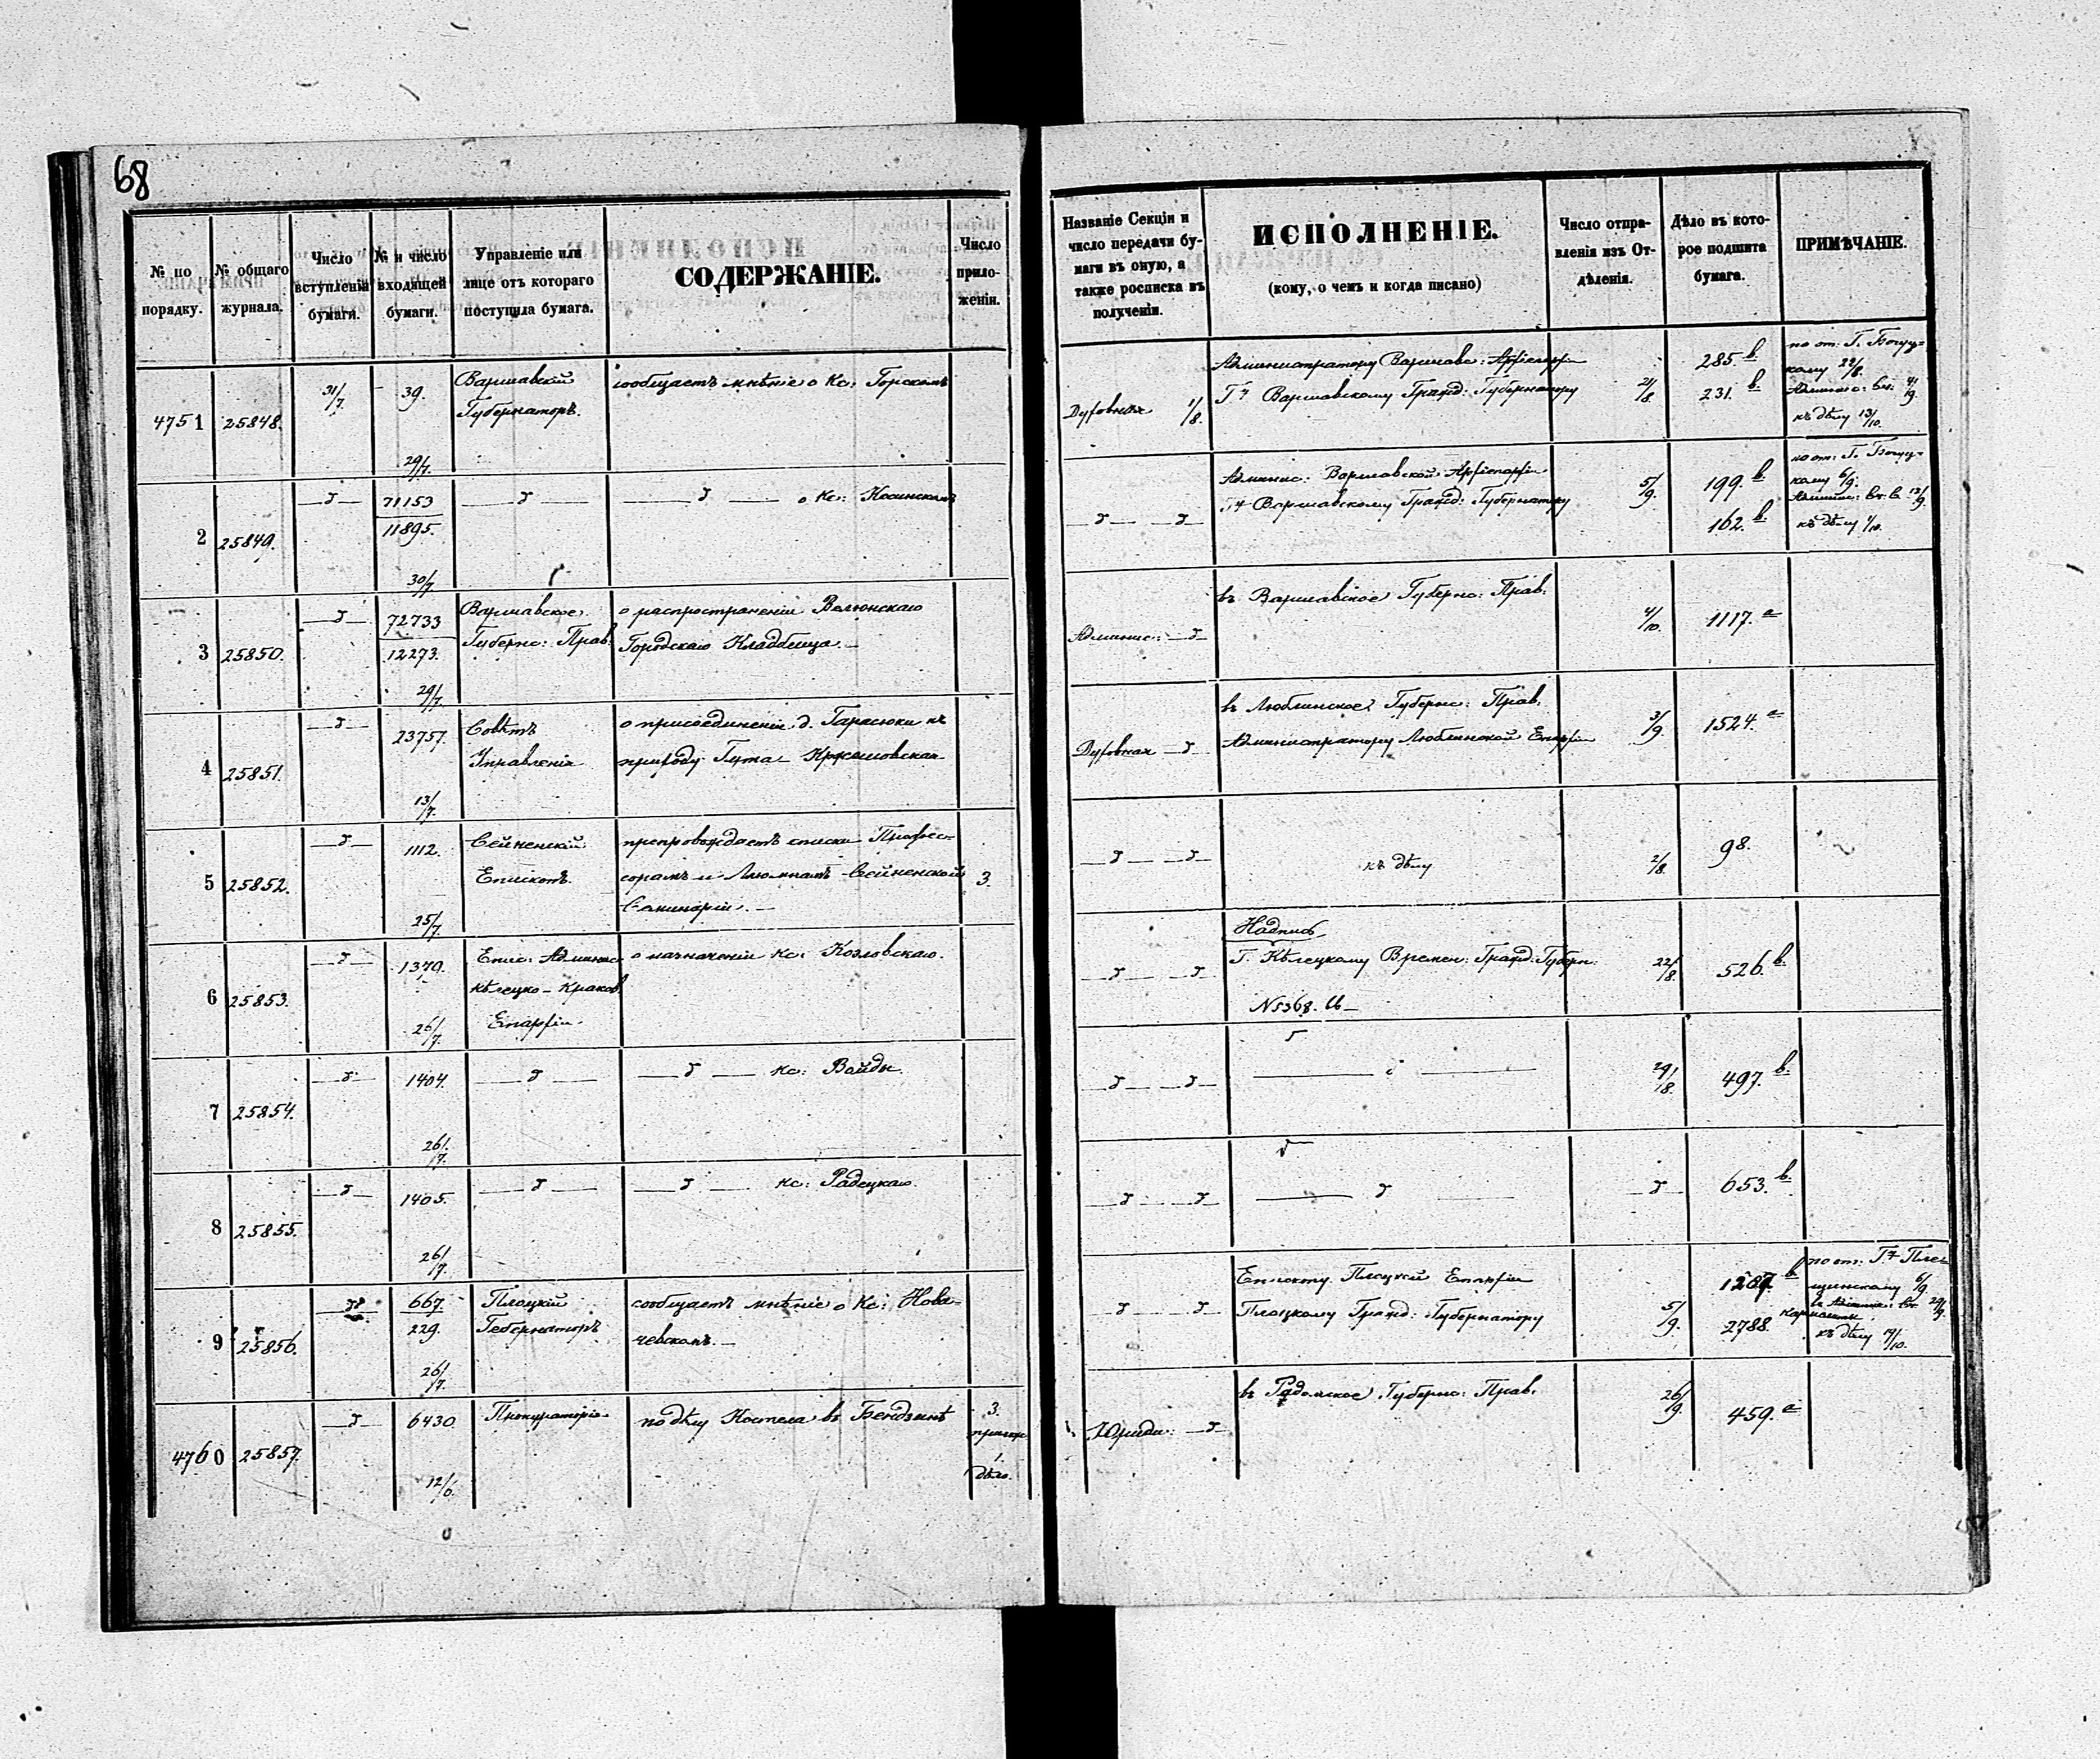 68
№ по порядку.
№ общаго журнала.
Число вступленія бумаги.
№ и число входящей бумаги.
Управленіе или лице отъ котораго поступила бумага.
СОДЕРЖАНІЕ.
Число приложеній.
Названіе Секціи и число передачи бумаги въ оную, а также росписка въ полученіи.
ИСПОЛНЕНІЕ.
(кому, о чемъ и когда писано)
Число отправленія изъ Отдѣленія.
Дѣло въ которое подшита бумага.
ПРИМѢЧАНІЕ.
4751 25848. 31/7. 39. 29/7.
Варшавскій
Губернаторъ.
сообщаетъ мнѣніе о Кс: Горскомъ
Духовная 1/8.
Администратору Варшавс: Архіепархіи
Гну Варшавскому Гражд: Губернатору
21/8.
285.в.
231.в.
къ дѣлу 13/10.
2 25849. 71153
11895.
30/7
о Кс: Косинскомъ
Админис: Варшавской Архіепархіи
Гну Варшавскому Гражд: Губернатору
5/9.
199.в.
162.в.
кому 6/9.
къ дѣлу 1/10.
3 25850. 72733
12273.
29/7.
Варшавское
Губернс: Прав:
о распространеніи Велюнскаго
Городскаго Кладбища.
Админис:
въ Варшавское Губернс: Прав:
4/10.
1117.а
4 25851. 23757. 13/7.
Совѣтъ
Управленія
о присоединеніи д. Тарасюки къ
приходу Гута Кржешовская
Духовная
въ Люблинское Губернс: Прав:
Администратору Люблинской Епархіи
3/9.
1524.а
5 25852. 1112. 25/7.
Сейненскій
Епископъ.
препровождаетъ списки Професорамъ и Алюмнамъ Сейненской
Семинаріи.
3.
къ дѣлу
2/8.
98.
6 25853. 1379. 26/7.
Епис: Админис:
Кѣлецко-Краков:
Епархіи.
о назначеніи Кс: Козловскаго.
Надпись
Г. Кѣлецкому Времен: Гражд: Губерн:
22/8.
526.в.
7 25854. 1404. 26/7.
кс: Вайды.
29/8.
497.в.
8 25855. 1405. 26/7.
кс: Радецкаго.
653.в.
9 25856. 667.
229.
26/7.
Плоцкій
Губернаторъ
сообщаетъ мнѣніе о Кс: Новачевскомъ.
Епископу Плоцкой Епархіи
Плоцкому Гражд: Губернатору
5/9.
2788.
къ дѣлу 19/10.
4760 25857. 6430. 12/6.
Прокураторіа
по дѣлу Костела въ Бендзинѣ
3.
1
дѣло.
Юриди:
въ Радомское Губернс: Прав:
26/9.
459.а